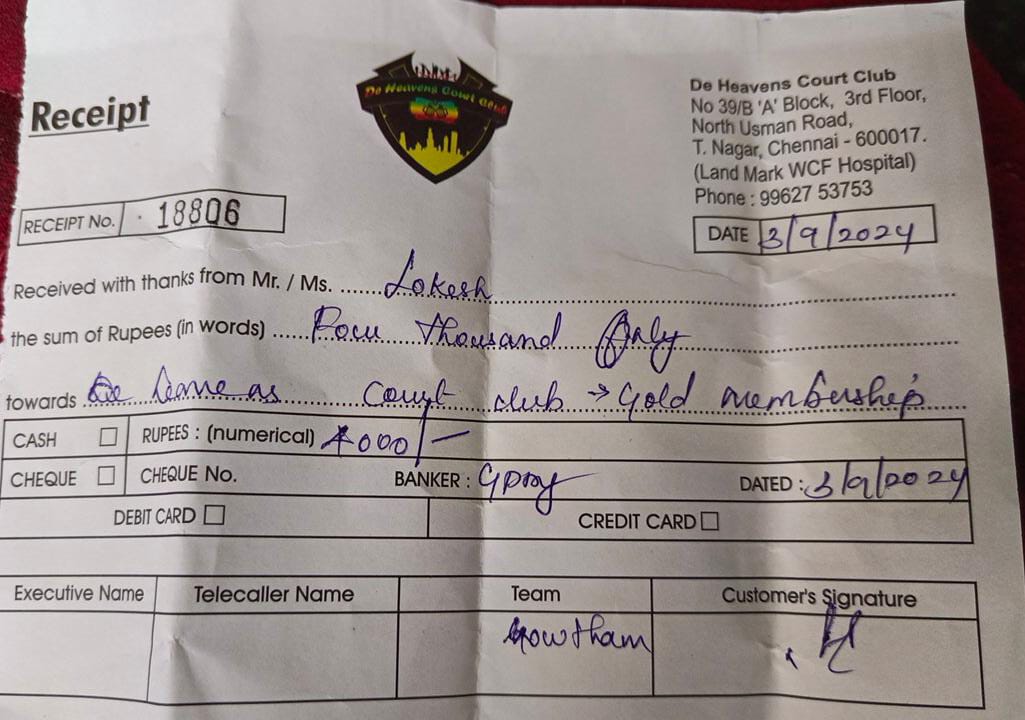 De Heavens Court Club
Receipt
De Heavens Court Club
No 39/B 'A' Block, 3rd Floor,
North Usman Road,
T. Nagar, Chennai - 600017.
(Land Mark WCF Hospital)
Phone : 99627 53753
RECEIPT No. 18806
DATE 3/9/2024
Received with thanks from Mr. / Ms. Lokesh
the sum of Rupees (in words) Four thousand Only
towards Court club → Gold membership
CASH RUPEES : (numerical) 4000/-
CHEQUE CHEQUE No. BANKER : Gpay DATED : 3/9/2024
DEBIT CARD CREDIT CARD
Executive Name Telecaller Name Team Customer's Signature
Gowtham